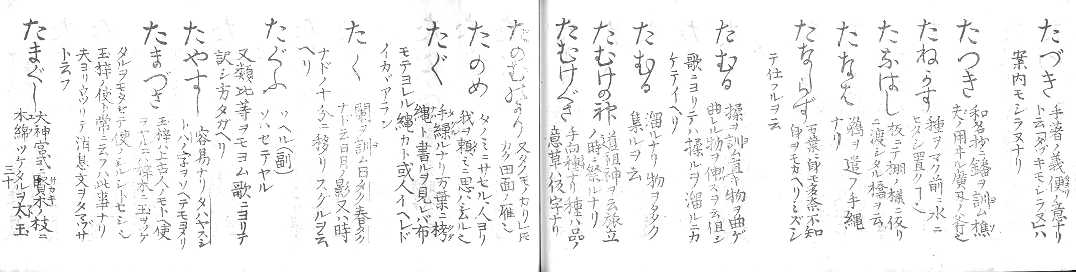 たづき 手着ノ義便ノ意ナリ
ト云「タヅキモシラヌ」ハ
案内モシラヌナリ
たつき 和名抄鐇ヲ訓ム樵
夫ノ用キル廣刄ノ斧也
たねかす 種ヲマク前ニ水ニ
ヒタシ置クヿ也
たなはし 板ニテ棚ノ様ニ仮リ
ニ渡シタル橋ヲ云
たなは 鵜ヲ遣フ手縄
ナリ
たなしらず 万葉ニ身多奈不知
身ヲモカヘリミズシ
テ仕フルヲ云
たむる 操ヲ訓ム直キ物ヲ曲ゲ
曲ル物ヲ伸スヲ云但シ
歌ニヨリテハ操ルヲ溜ルニカ
ケテイヘリ
たむる 溜ルナリ物ヲタクハヘ
集ルヲ云
たむけの神 道祖神ヲ云旅立
ノ時ニ祭ルナリ
たむけぐさ 手向種ナリ種ハ品ノ
意草ハ仮字ナリ
たのむのかり 又タノモノカリ此
カク田面ノ雁也
たのめ タノミニサセル人ヨリ
我ヲ頼ミニ思ハ
たぐ 手繰ルナリ万葉ニ
縄ト書ルヲ見レバ布
モテヨレル縄カト或人イヘレド
イカヾアラン
たく 闌ヲ訓ム日タク春タク
ナド云日月ノ影又ハ時
ナドノ十分ニ移リスグルヲ云
ヘリ
たぐふ ソヘル(副)
ソハセテヤル
又類比等ヲモヨム歌ニヨリテ
訳シ方タガヘリ
たやすし 容易ナリタハヤスシ
トハノ字ヲソヘテモヨメリ
たまづさ 玉梓ハ上古人ノモトヘ使
ヲヤルニ梓ノ木ニ玉ヲツケ
タルヲモタセテ使ノシルシトセシ也
玉梓ノ使ト常ニ云フハ此事ナリ
夫ヨリウツリテ消息文ヲタマヅサ
ト云フ
たまぐし 大神宮式ニ賢木ノ枝ニ
木綿ヲツケタルヲ太玉
三十